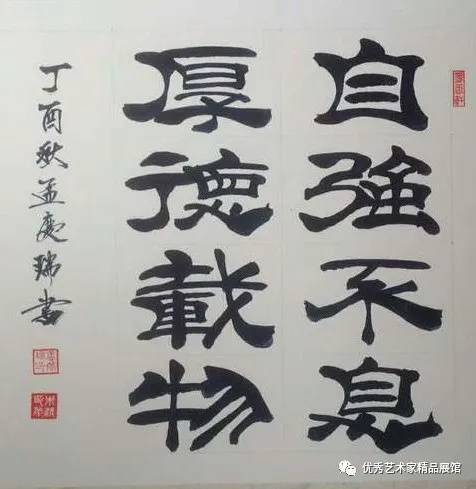 自強不息
厚德載物
丁酉秋孟慶瑞書
优秀艺术家精品展馆